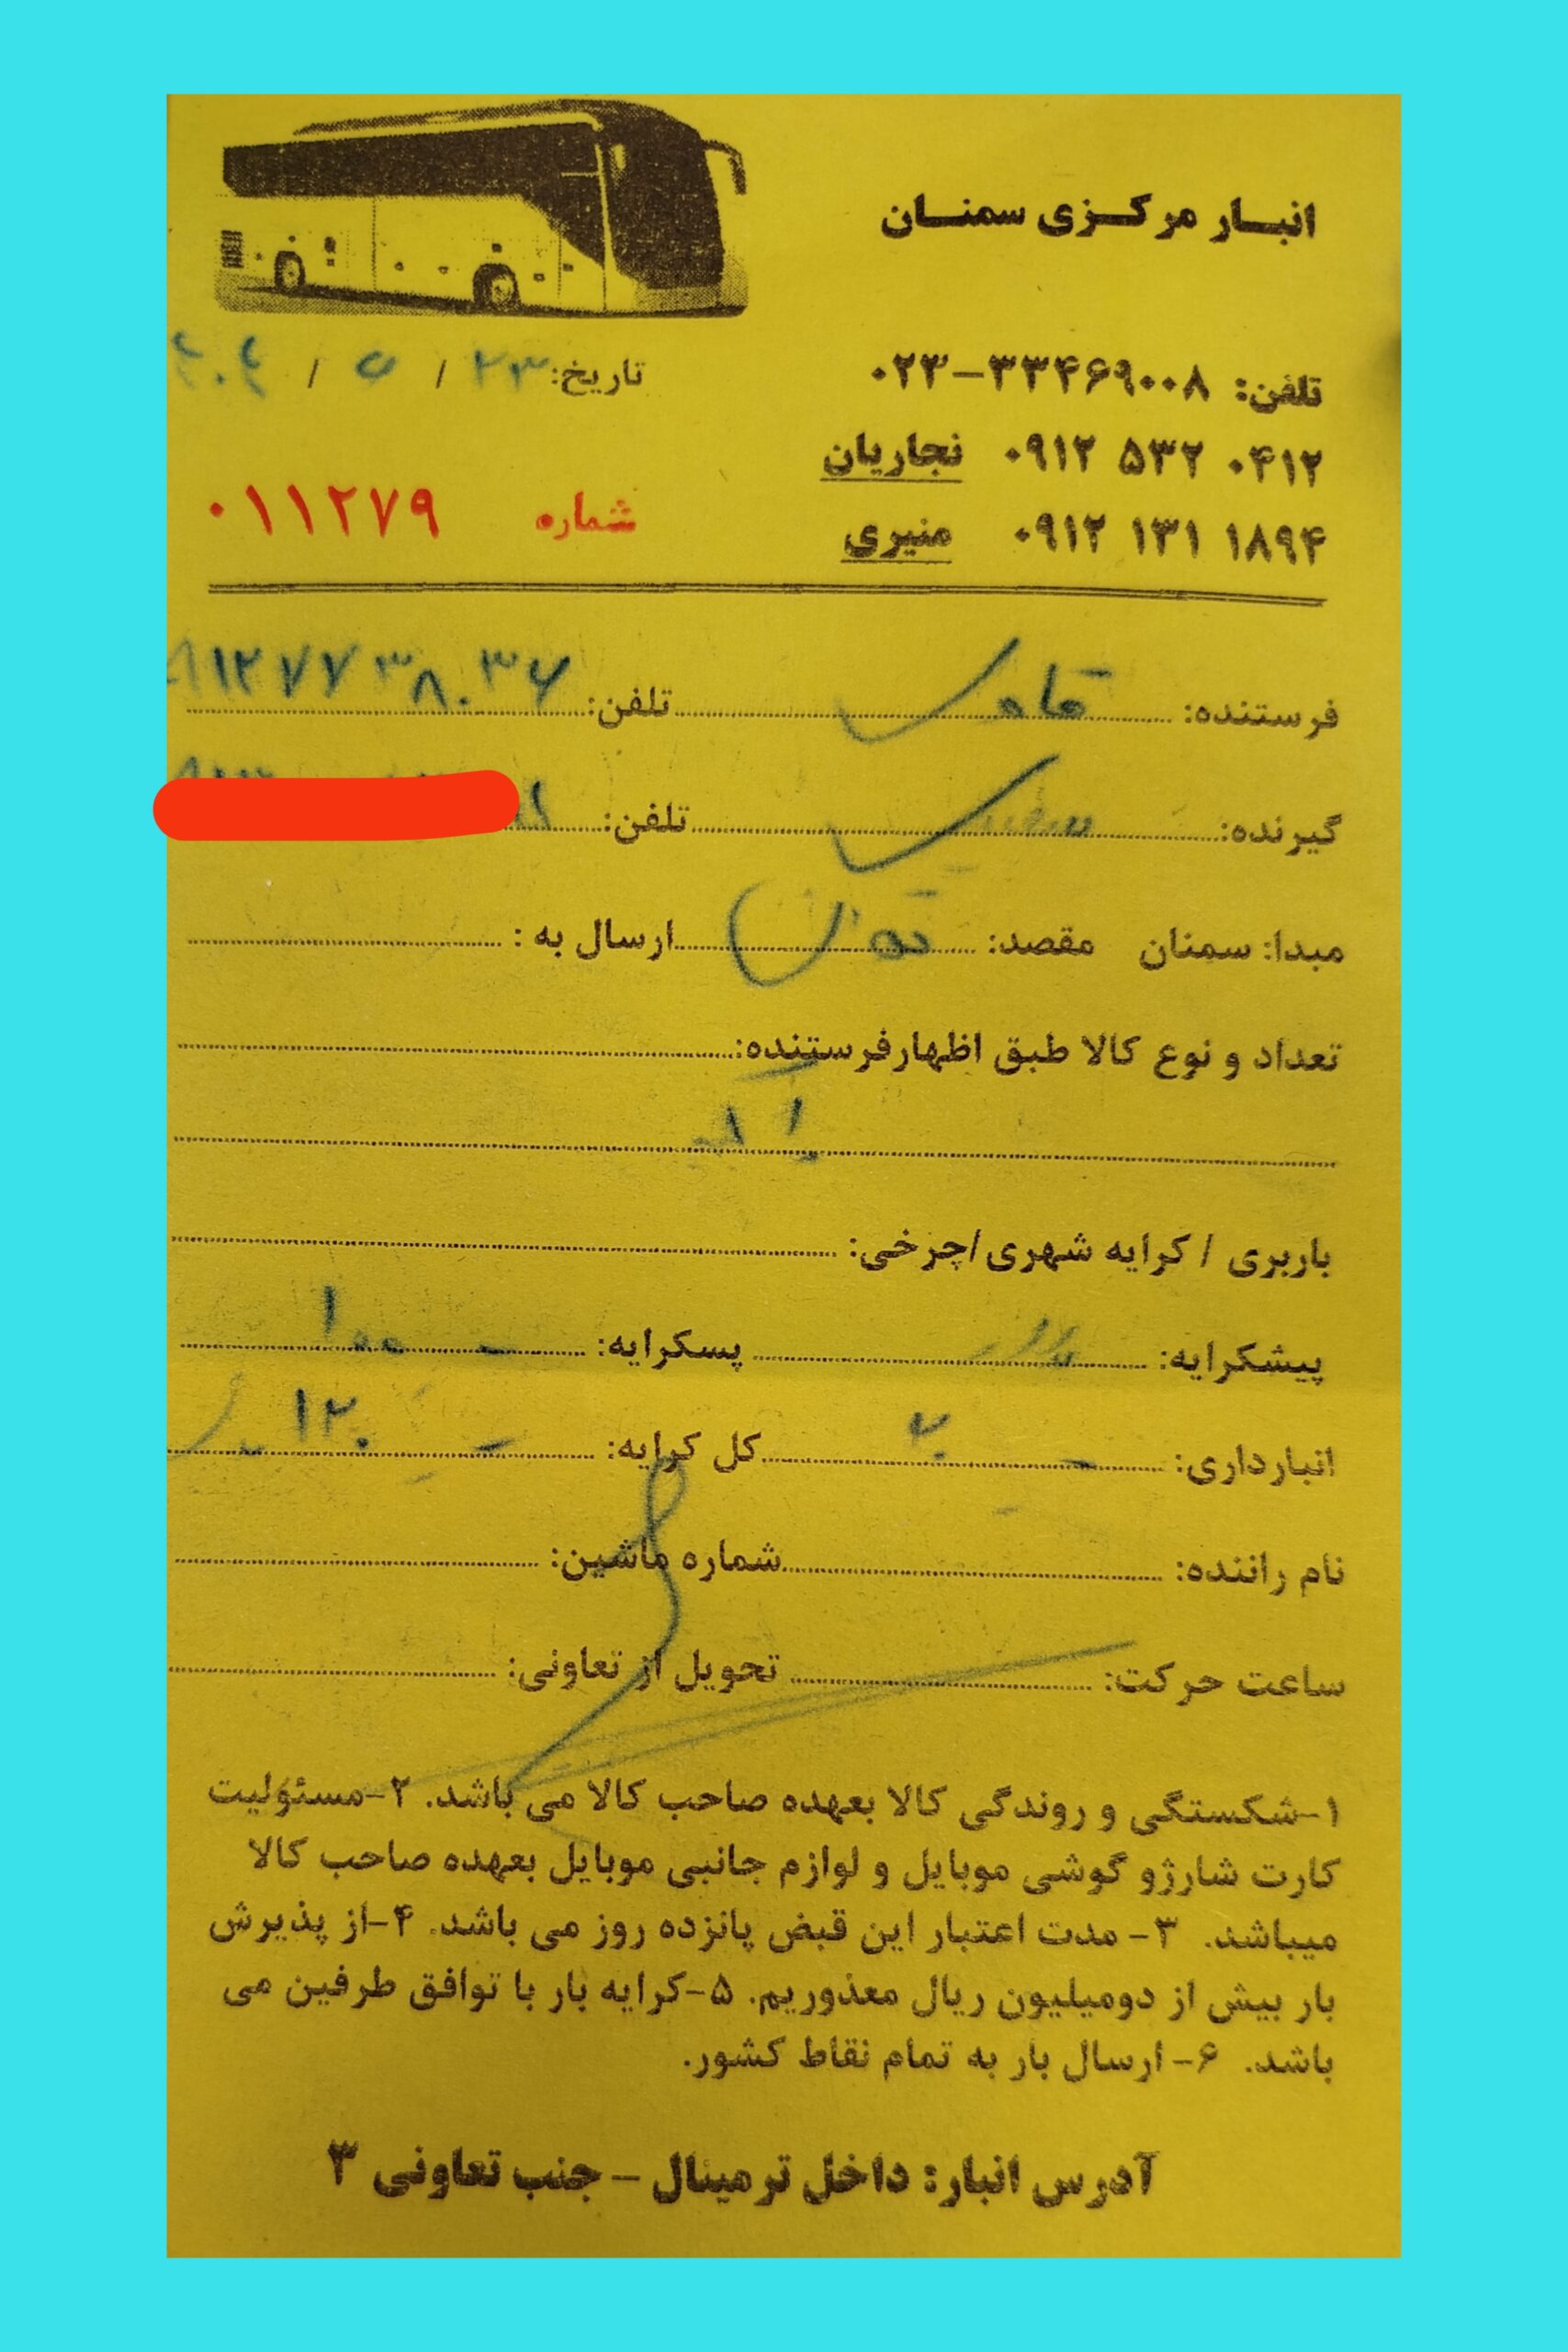 انبار مرکزی سمنان
تلفن: ۰۲۳-۳۳۴۶۹۰۰۸
تاریخ: ۲۳ / ۵ / ۴۰۴
۰۹۱۲ ۵۳۲ ۰۴۱۲ نجاریان
شماره ۰۱۱۲۷۹
۰۹۱۲ ۱۳۱ ۱۸۹۴ منیری
فرستنده: تلفن: ۹۱۲۷۷۳۸۰۳۶
گیرنده: تلفن:
مبدا: سمنان مقصد: تهران ارسال به :
تعداد و نوع کالا طبق اظهارفرستنده:
باربری / کرایه شهری/چرخی:
پیشکرایه: پسکرایه: ۱۰۰
انبارداری: ۲۰ کل کرایه: ۱۲۰
نام راننده: شماره ماشین:
ساعت حرکت: تحویل از تعاونی:
۱-شکستگی و روندگی کالا بعهده صاحب کالا می باشد. ۲-مسئولیت
کارت شارژو گوشی موبایل و لوازم جانبی موبایل بعهده صاحب کالا
میباشد. ۳- مدت اعتبار این قبض پانزده روز می باشد. ۴-از پذیرش
بار بیش از دومیلیون ریال معذوریم. ۵-کرایه بار با توافق طرفین می
باشد. ۶- ارسال بار به تمام نقاط کشور.
آدرس انبار: داخل ترمینال – جنب تعاونی ۳